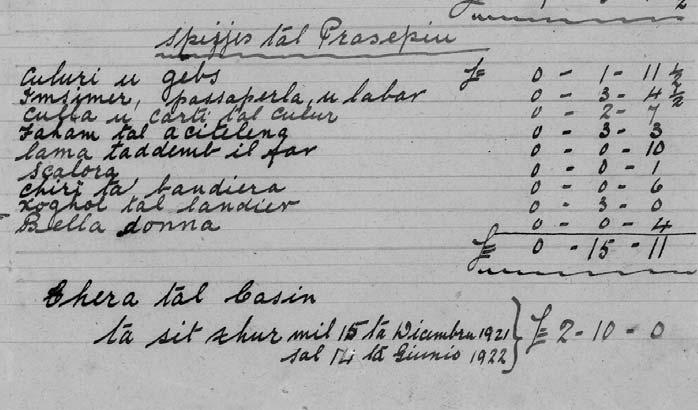 £ 2
Spizjes tal Prasepiu
Culuri u gebs £ 0 - 1 - 11 1/2
Imsimer, passaperla, u labar 0 - 3 - 4 1/2
Culla u carti tal culur 0 - 2 - 7
Faham tal aciteleng 0 - 3 - 3
lama taddemb il far 0 - 0 - 10
Scalora 0 - 0 - 1
chiri ta' bandiera 0 - 0 - 6
xoghol tal landier 0 - 3 - 0
Bella donna 0 - 0 - 4
£ 0 - 15 - 11
Chera tal Casin
ta sit xhur mil 15 ta Dicembru 1921 } £ 2 - 10 - 0
sal 14 ta Giunio 1922